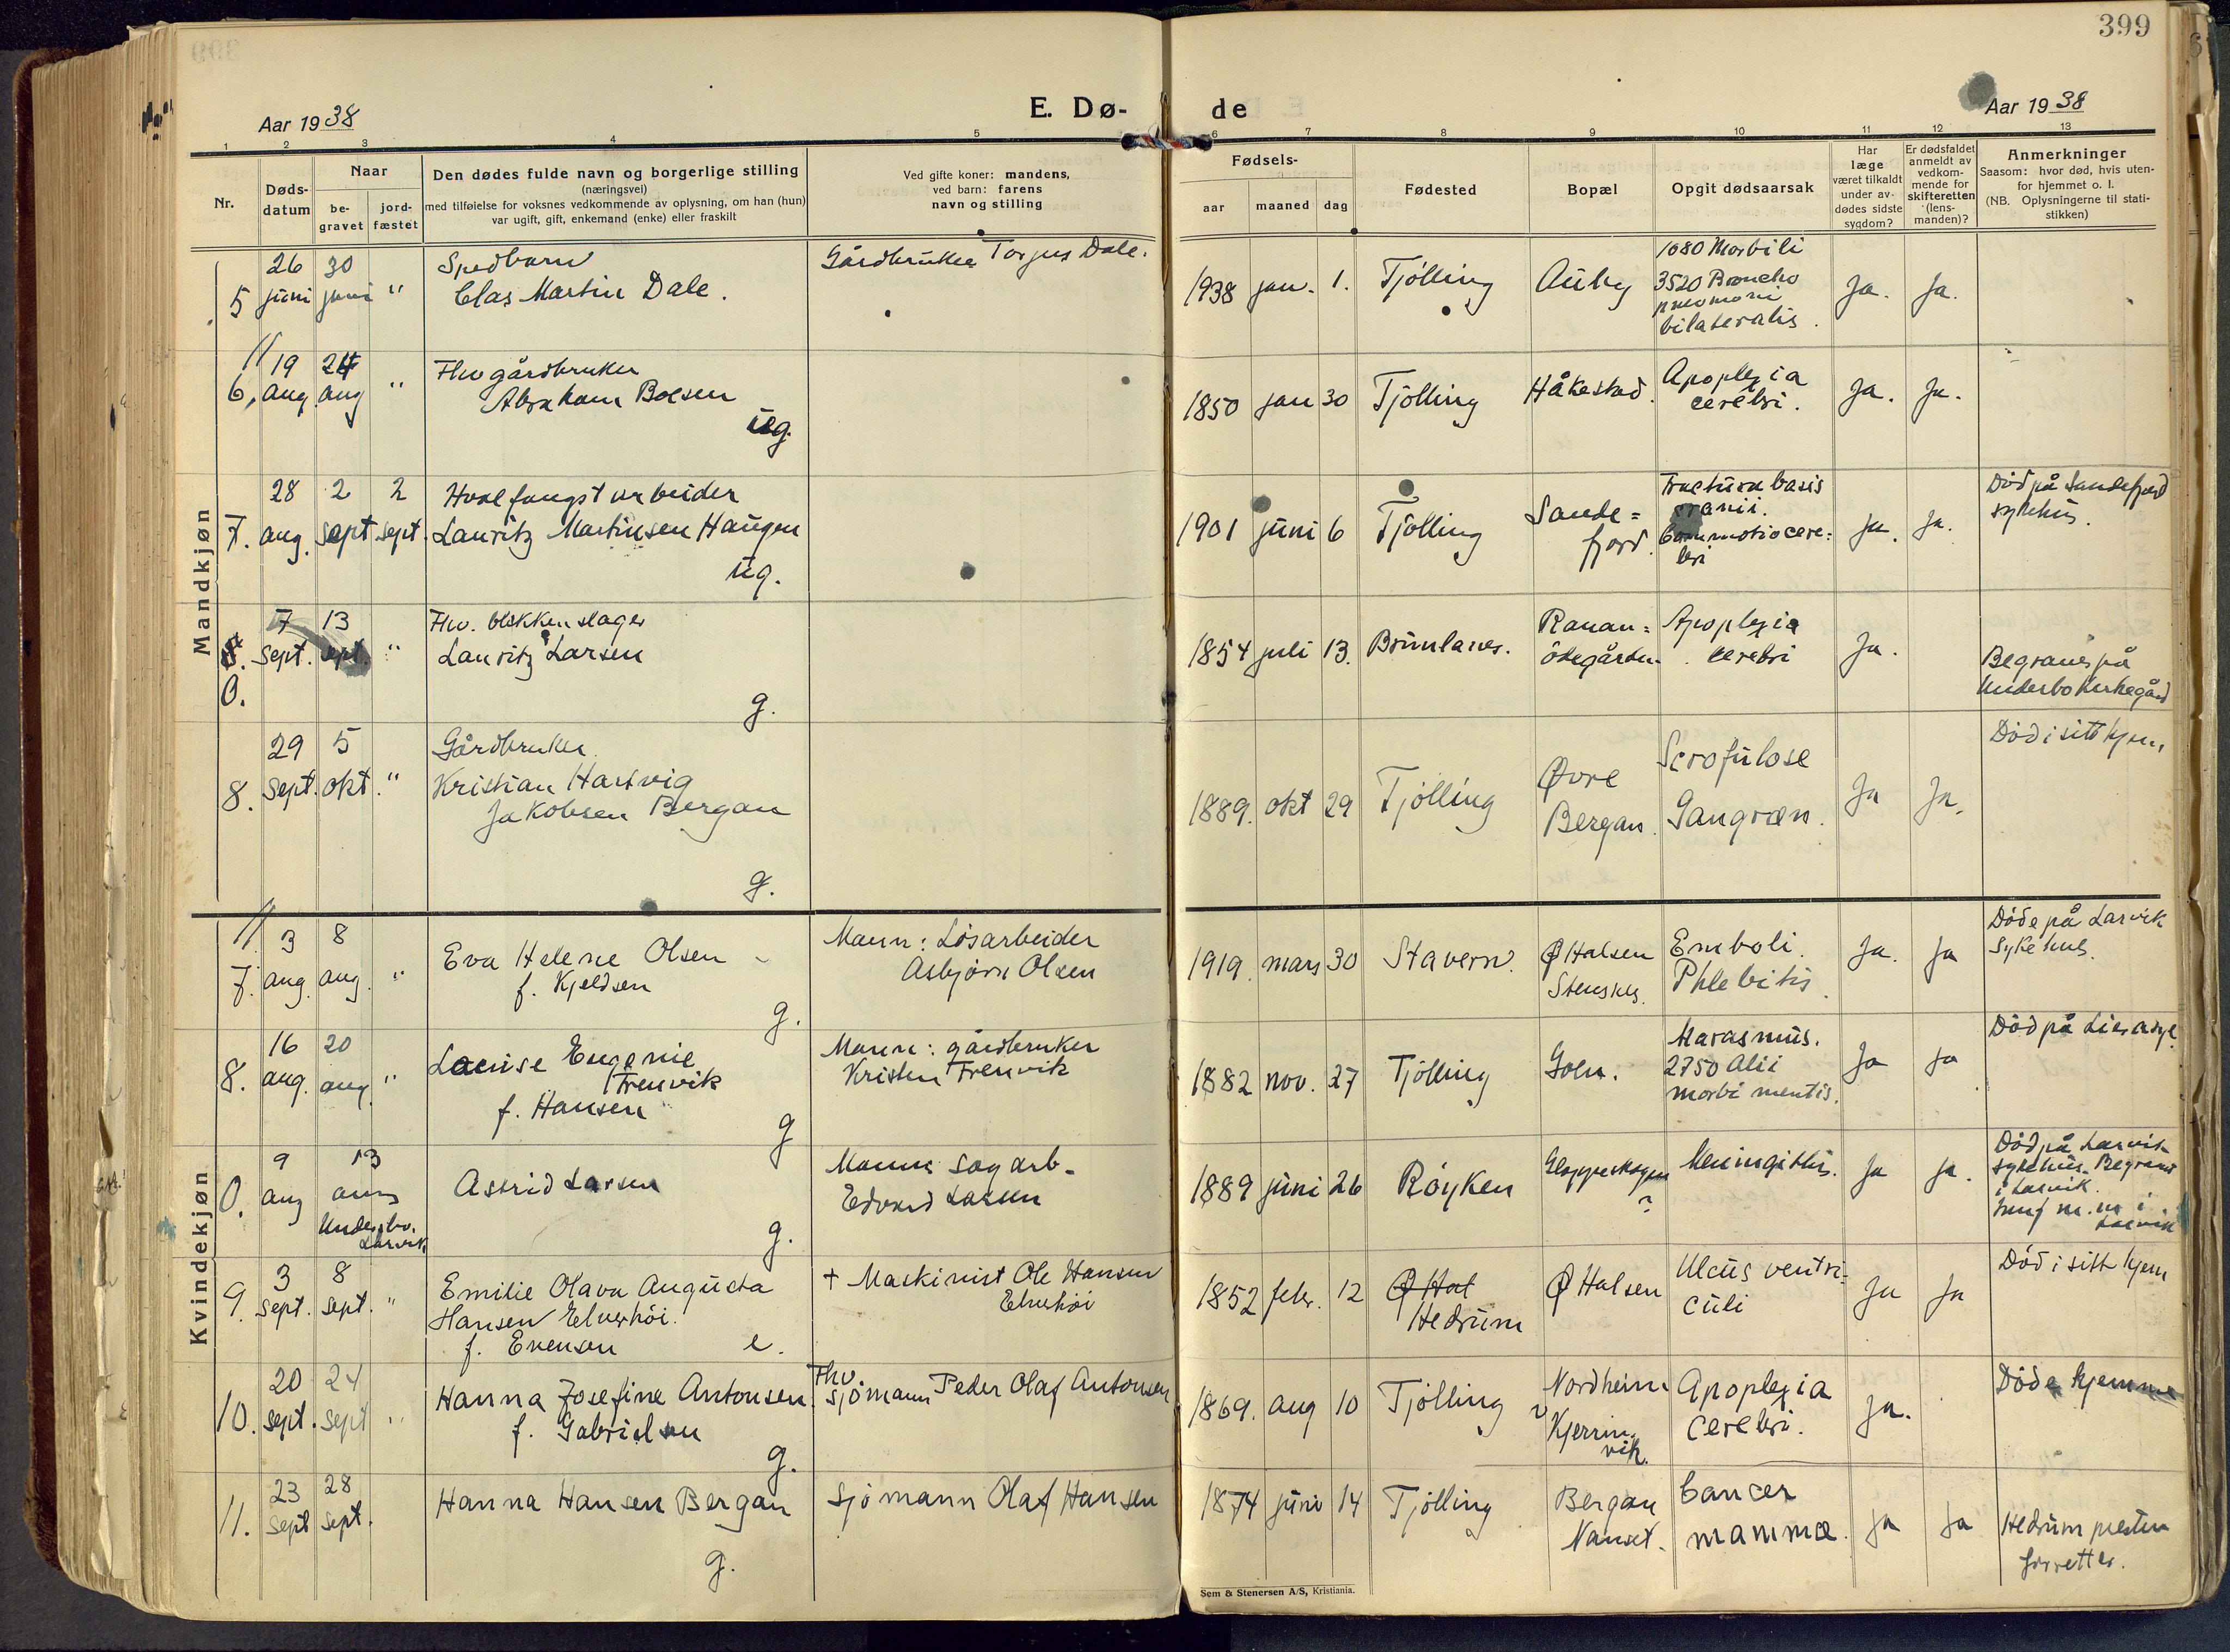 399
Aar 1938
E. Dø-
de
Aar 1938
1 2 3 4 5 6 7 8 9 10 11 12 13
Nr.
Døds-
datum
Naar
be-
gravet
jord-
fæstet
Den dødes fulde navn og borgerlige stilling
(næringsvei)
med tilføielse for voksnes vedkommende av oplysning, om han (hun)
var ugift, gift, enkemand (enke) eller fraskilt
Ved gifte koner: mandens,
ved barn: farens
navn og stilling
Fødsels-
aar maaned dag
Fødested
Bopæl
Opgit dødsaarsak
Har
læge
været tilkaldt
under av-
dødes sidste
sygdom?
Er dødsfaldet
anmeldt av
vedkom-
mende for
skifteretten
(lens-
manden)?
Anmerkninger
Saasom: hvor død, hvis uten-
for hjemmet o. l.
(NB. Oplysningerne til stati-
stikken)
Mandkjøn
5 26 juni 30 juni "
Spedbarn
Clas Martin Dale.
Gårdbruker Torjus Dale.
1938 jan. 1. Tjölling Auby
1080 Morbili
3520 Broncho
pneumoni
bilateralis.
Ja. Ja.
6. 19 aug. 24 aug "
Fhv gårdbruker
Abraham Boesen
ug.
1850 jan 30 Tjölling Håkestad.
Apoplexia
cerebri.
Ja. Ja.
7. 28 aug. 2 sept 2 sept.
Hvalfangstarbeider
Lauritz Martinsen Haugen
ug.
1901 juni 6 Tjölling
Sande=
fjord.
Fractura basis
cranii.
Commotio cere=
bri
Ja. Ja.
Död på Sandefjord
sykehus.
0. 7 sept. 13 sept. "
Fhv. blikkenslager
Lauritz Larsen
g.
1854 juli 13. Brunlanes.
Ranan=
ödegården.
Apoplexia
cerebri
Ja.
Begraves på
Undersbo kirkegård
8. 29 sept. 5 okt. "
Gårdbruker
Kristian Hartvig
Jakobsen Bergan
g.
1889. okt 29 Tjölling
Øvre
Bergan.
Scrofulose
Gangræn.
Ja Ja.
Död i sitt hjem
Kvindekjøn
7. 3 aug. 8 aug. "
Eva Helene Olsen
f. Kjeldsen
g.
Mann: Lösarbeider
Asbjörn Olsen
1919. mars 30 Stavern.
Ø Halsen
Emboli.
Phlebitis.
Ja. Ja
Döde på Larvik
sykehus.
8. 16 aug. 20 aug. "
Louise Eugenie
Trenvik
f. Hansen
g
Mann: gårdbruker
Kristen Trenvik
1882 nov. 27 Tjölling Golu.
Marasmus.
2750 Alii
morbi mentis.
Ja Ja
Död på Lier asyl.
0. 9 aug 13 aug
Undersbo.
Larvik
Astrid Larsen
g.
Mann sagarb-
Edvard Larsen
1889 juni 26 Röyken Gloppeskogen
?
Meningitis.
Ja Ja.
Död på Larvik
sykehus. Begravet
i Larvik.
9. 3 sept. 8 sept. "
Emilie Olava Augusta
Hansen Elverhöi.
f. Evensen e.
+ Maskinist Ole Hansen
Elverhöi
1852 febr. 12 Ø Hal
Hedrum
Ø Halsen
Ulcus ventri=
culi
Ja Ja
Död i sitt hjem
10. 20 sept. 24 sept "
Hanna Josefine Antonsen.
f. Gabrielsen
g.
Fhv.
sjömann Peder Olaf Antonsen
1869. aug 10 Tjölling
Nordheim
Kjerrin.
vik.
Apoplexia
cerebri.
Ja.
Död hjemme
11. 23 sept 28 sept.
Hanna Hansen Bergan
g.
Sjömann Olaf Hansen
1874 juni 14 Tjölling
Bergan
Nanset.
Cancer
mammæ.
Ja Ja
Hedrum presten
forretter.
Sem & Stenersen A/S, Kristiania.